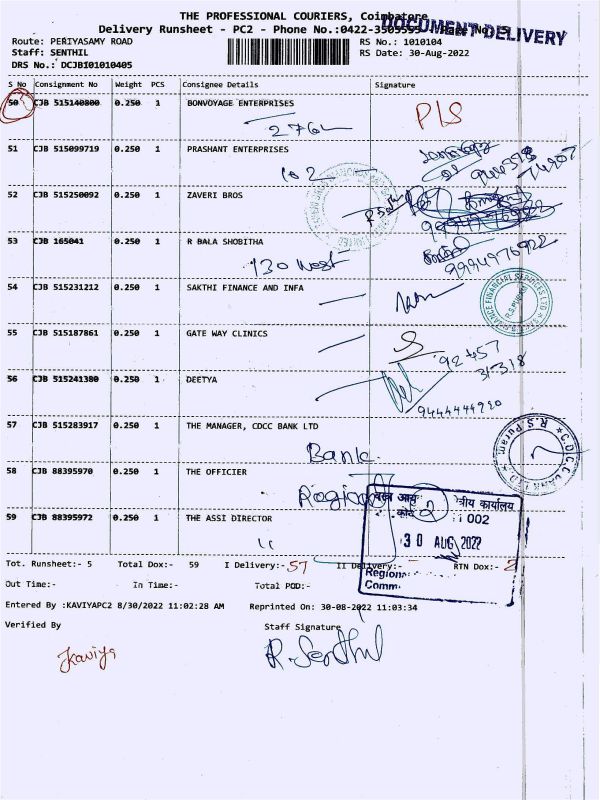 THE PROFESSIONAL COURIERS, Coimbatore
Delivery Runsheet - PC2 - Phone No.:0422-3505555 - Page No : 5
DOCUMENT DELIVERY
Route: PERIYASAMY ROAD
RS No.: 1010104
Staff: SENTHIL
RS Date: 30-Aug-2022
DRS No.: DCJBI01010405
S No Consignment No Weight PCS Consignee Details Signature
50 CJB 515140800 0.250 1 BONVOYAGE ENTERPRISES
PLS
51 CJB 515099719 0.250 1 PRASHANT ENTERPRISES
102
52 CJB 515250092 0.250 1 ZAVERI BROS
53 CJB 165041 0.250 1 R BALA SHOBITHA
130 West
9994976922
54 CJB 515231212 0.250 1 SAKTHI FINANCE AND INFA
R.S.PURAM
55 CJB 515187861 0.250 1 GATE WAY CLINICS
92457
31318
56 CJB 515241380 0.250 1 DEETYA
9444444920
57 CJB 515283917 0.250 1 THE MANAGER, CDCC BANK LTD
Bank.
R.S.Puram
58 CJB 88395970 0.250 1 THE OFFICIER
Regional
59 CJB 88395972 0.250 1 THE ASSI DIRECTOR
क्षेत्रीय कार्यालय
002
30 AUG 2022
Tot. Runsheet:- 5 Total Dox:- 59 I Delivery:- 57 II Delivery:- RTN Dox:- 2
Out Time:- In Time:- Total POD:-
Entered By :KAVIYAPC2 8/30/2022 11:02:28 AM Reprinted On: 30-08-2022 11:03:34
Verified By Staff Signature
Kaviya R. Senthil